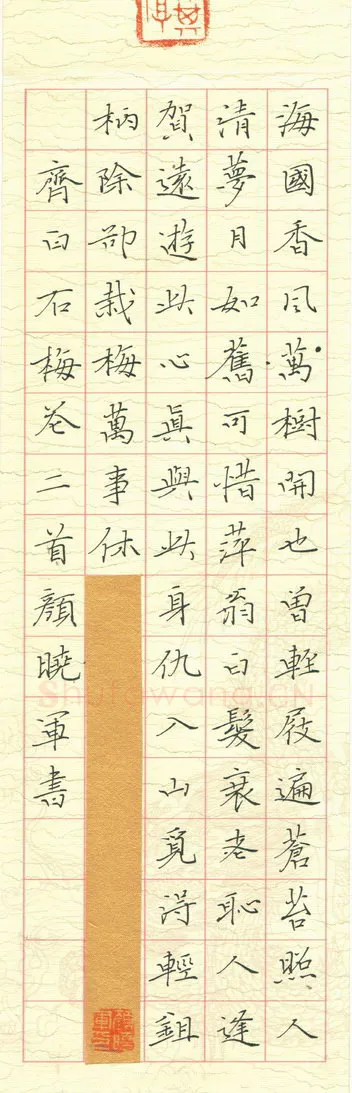 海國香风萬樹開也曾輕屐遍蒼苔照人
清夢月如舊可惜萍翁白髮衰老恥人逢
賀遠遊此心眞與此身仇入山覓得輕鉏
柄除卻栽梅萬事休
齊白石梅花二首顏曉軍書
Shufawang.CN